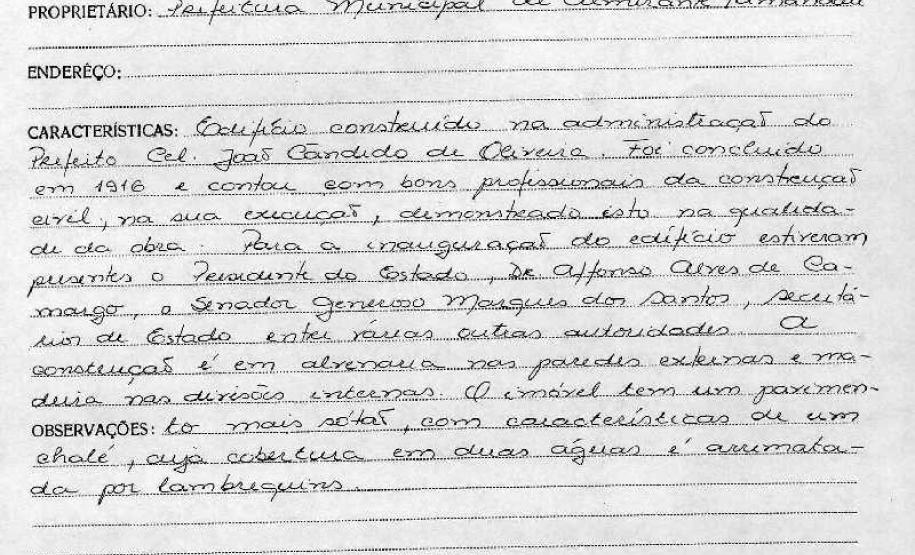 PROPRIETÁRIO: Prefeitura Municipal de Almirante Tamandaré
ENDERÊÇO:
CARACTERÍSTICAS: Edifício construído na administração do
Prefeito Cel. João Cândido de Oliveira. Foi concluído
em 1916 e contou com bons profissionais da construção
civil, na sua execução, demonstrado isto na qualida-
de da obra. Para a inauguração do edifício estiveram
presentes o Presidente do Estado, Dr Affonso Alves de Ca-
margo, o Senador Generoso Marques dos Santos, secretá-
rios de Estado entre várias outras autoridades. A
construção é em alvenaria nas paredes externas e ma-
deira nas divisões internas. O imóvel tem um pavimen-
OBSERVAÇÕES: to mais sótão, com características de um
chalé, cuja cobertura em duas águas é arremata-
da por lambrequins.